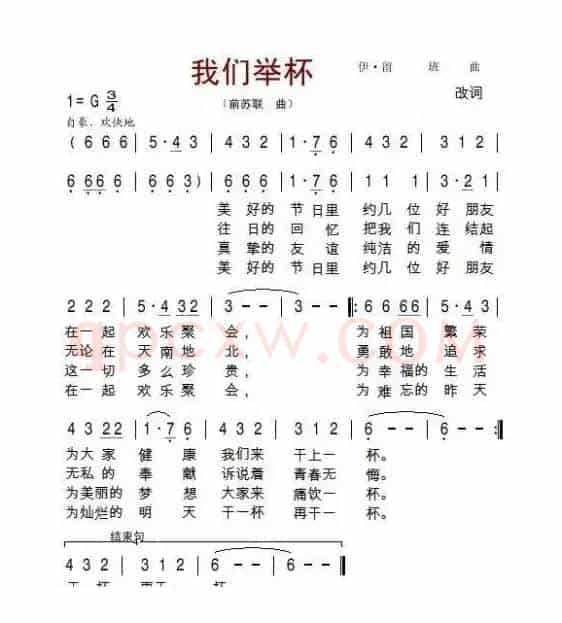 我们举杯
伊·留 班 曲
1=G 3/4
（前苏联 曲）
改词
自豪、欢快地
( 6 6 6 | 5·4 3 | 4 3 2 | 1·7 6 | 4 3 2 | 3 1 2 |
6 66 6 | 6 6 6 ) | 6 6 6 | 1·7 6 | 1 1 1 | 3·2 1 |
美 好的 节 日里 约几 位 好 朋友
往 日的 回 忆 把我 们 连 结起
真 挚的 友 谊 纯洁 的 爱 情
美 好的 节 日里 约几 位 好 朋友
2 2 2 | 5·4 32 | 3 - - | 3 - - |: 6 6 66 | 5·4 3 |
在一 起 欢 乐聚 会， 为 祖国 繁 荣
无论 在 天 南地 北， 勇 敢地 追 求
这一 切 多 么珍 贵， 为 幸福的 生 活
在一 起 欢 乐聚 会， 为 难忘的 昨 天
qpcxw.com
4 3 22 | 1·7 6 | 4 3 2 | 3 1 2 | 6 - - | 6 - - :|
为大 家 健 康 我们 来 干上 一 杯。
无私 的 奉 献 诉说 着 青春 无 悔。
为美丽的 梦 想 大家 来 痛饮 一 杯。
为灿烂的 明 天 干一 杯 再干 一 杯。
结束句
4 3 2 | 3 1 2 | 6 - - | 6 - - ‖